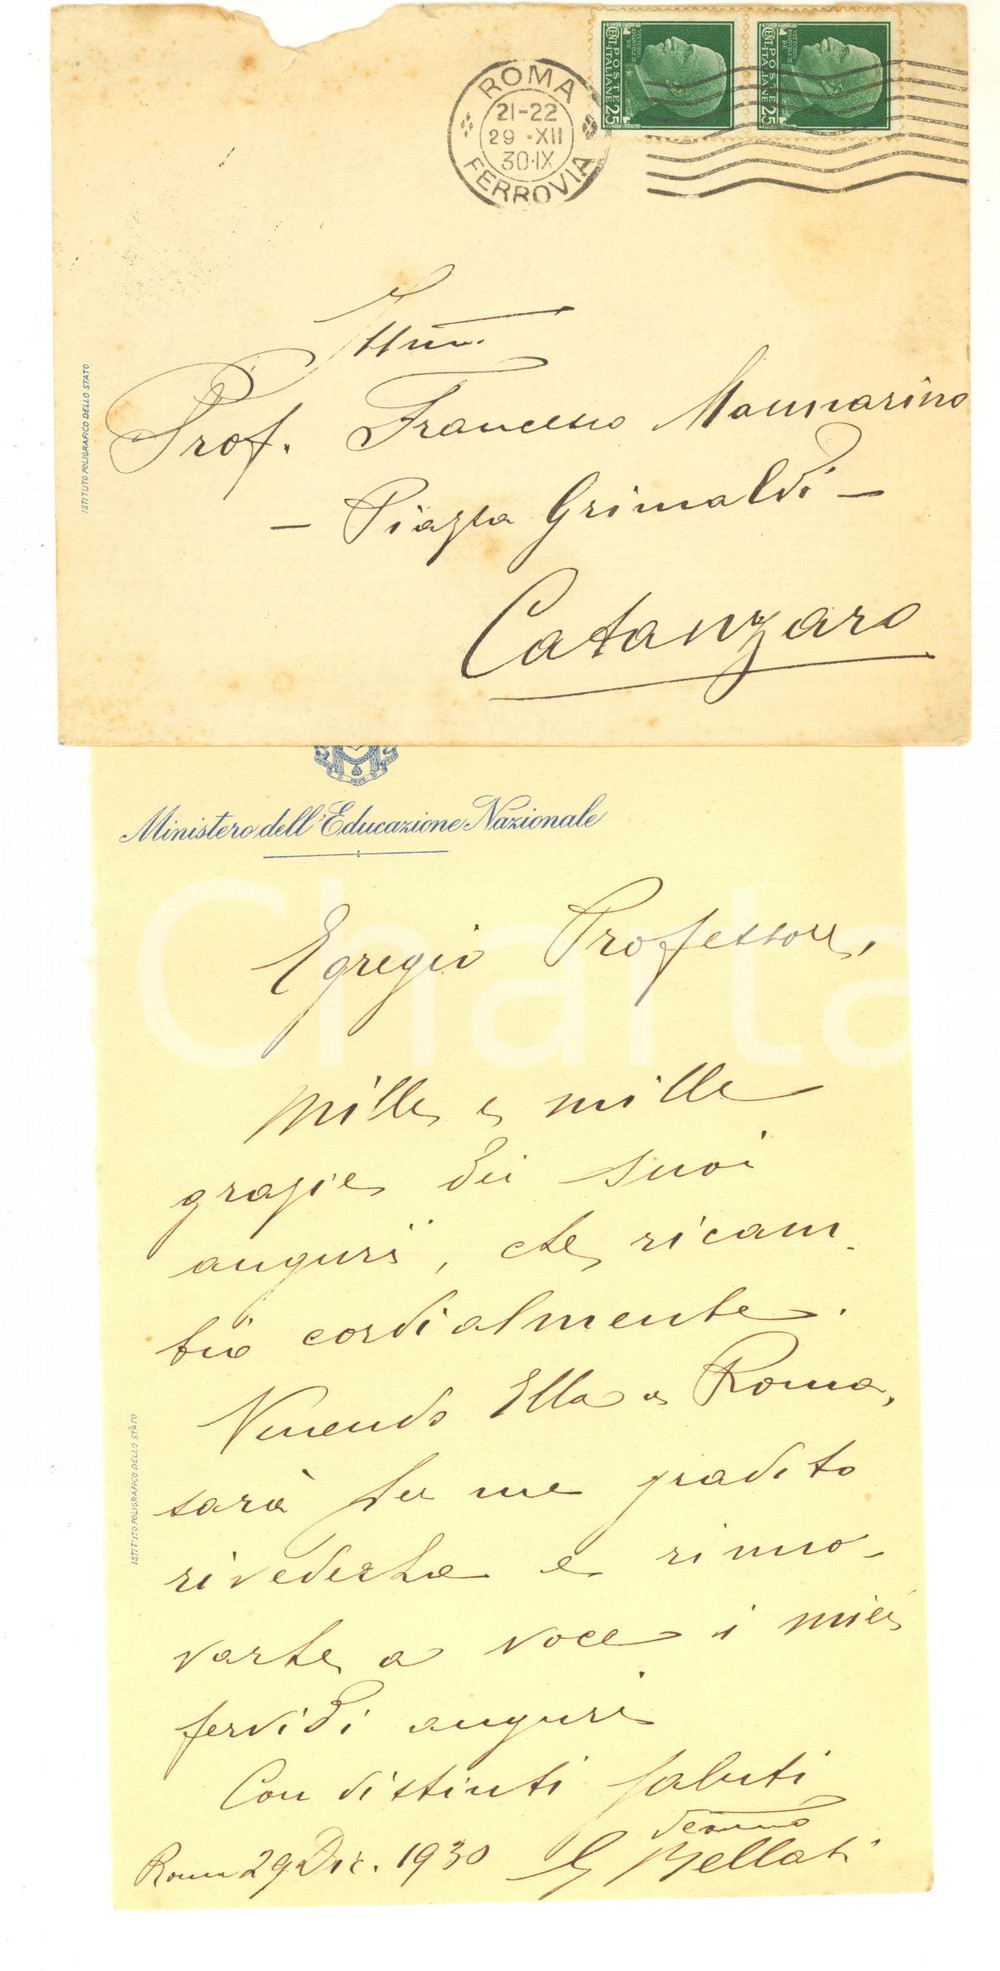 ROMA
21-22
29 · XII
30·IX
FERROVIA
POSTE ITALIANE
CENT 25
POSTE ITALIANE
CENT 25
Ill.mo
Prof. Francesco Mannarino
— Piazza Grimaldi —
Catanzaro
ISTITUTO POLIGRAFICO DELLO STATO
Ministero dell'Educazione Nazionale
Charta
Egregio Professore,
Mille e mille
grazie dei suoi
augurï, che ricam-
bio cordialmente.
Venendo Ella a Roma,
sarà per me gradito
rivederLa e rinno-
varLe a voce i miei
fervidi auguri
Con distinti saluti
G Bellati
Roma 29 Dic. 1930
ISTITUTO POLIGRAFICO DELLO STATO